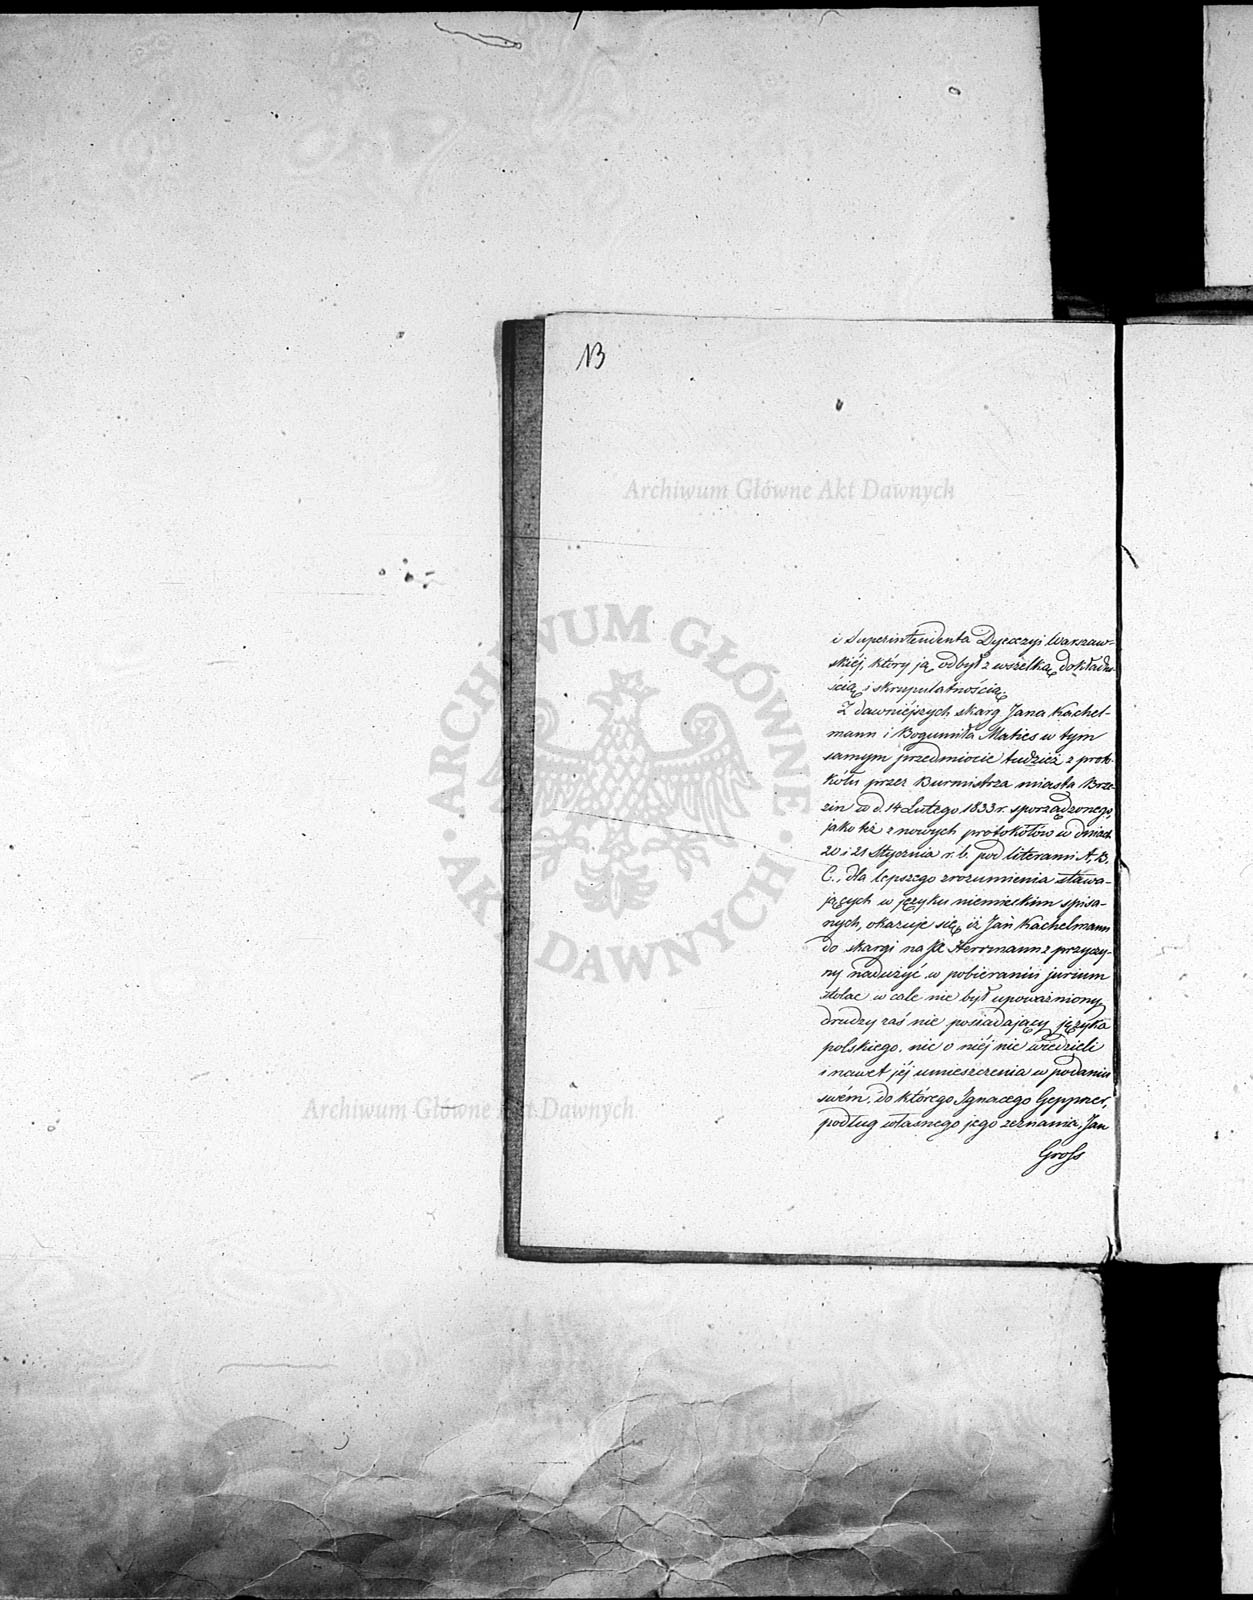 NB
i Superintendenta Dyecezyi Warszaw-
skiéj, który ją odbył z wszelką dokładno-
ścią i skrupulatnością.
Z dawniéjszych skarg Jana Kachel-
mann i Bogumiła Maties w tym
samym przedmiocie tudzież z proto-
kółu przez Burmistrza miasta Brze-
zin w d. 14 Lutego 1833 r. sporządzonego,
jako też z nowych protokółów w dniach
20 i 21 Stycznia r. b. pod literami A, B,
C., dla lepszego zrozumienia stawa-
jących w języku niemieckim spisa-
nych, okazuje się, iż Jan Kachelmann
do skargi na JX Herrmann z przyczy-
ny nadużyć w pobieraniu jurium
stolae w cale nie był upoważniony,
drudzy zaś nie posiadający języka
polskiego, nic o niéj nie wiedzieli
i nawet jéj umieszczenia w podaniu
swém, do którego Ignacego Geppner,
podług własnego jego zeznania, Jan
Gross
Archiwum Główne Akt Dawnych
ARCHIWUM GŁÓWNE
AKT DAWNYCH
Archiwum Główne Akt Dawnych